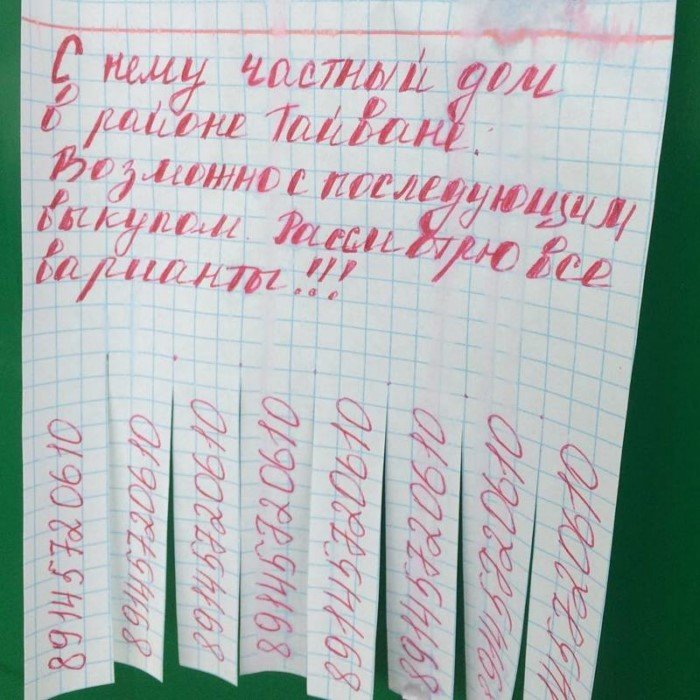 С нему частный дом
в районе Тайване.
Возможно с последующим
выкупом. Рассмотрю все
варианты!!!
89145720610
89145720610
89145720610
89145720610
89145720610
89145720610
89145720610
45720610